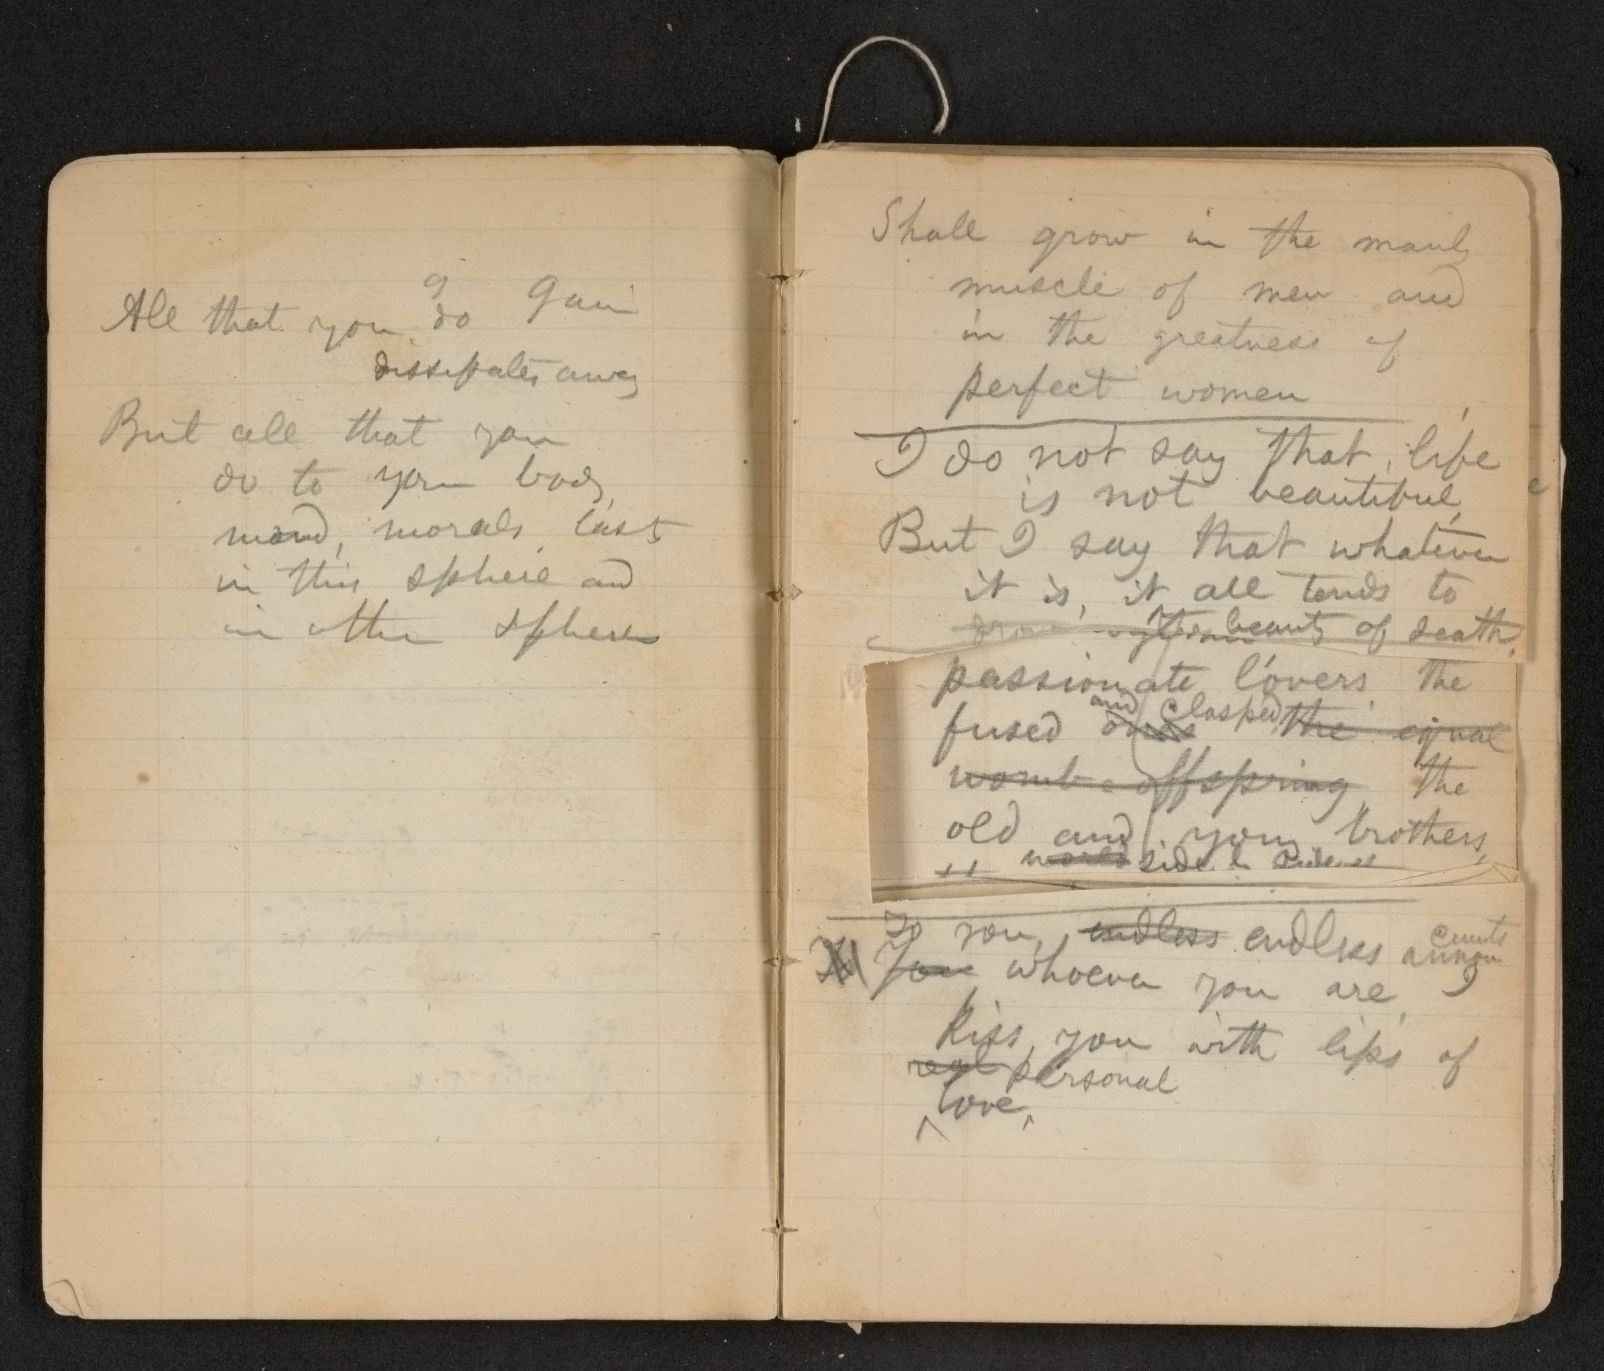 All that you do g gain
dissipates away
But all that you
do to your body,
mind, morals, lasts
in this sphere and
in other spheres
Shall grow in the manly
muscle of men and
in the greatness of
perfect women
I do not say that life
is not beautiful,
But I say that whatever
it is, it all tends to
the beauty of death.
passionate lovers the
fused ones and clasped the equal
womb offspring the
old and young brothers,
side
To you, endless endless
You whoever you are, I
kiss you with lips of
real personal
love,